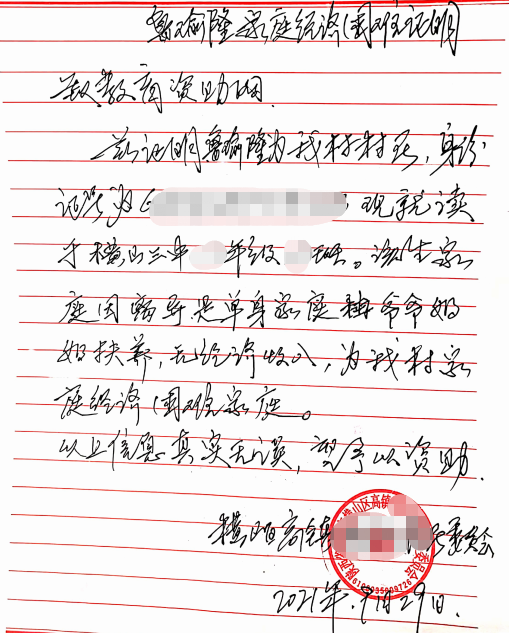 鲁瑜隆家庭经济困难证明
县教育资助中心
兹证明鲁瑜隆为我村村民，身份
证号为 现就读
于横山三中 年级 班。该生家
庭因 是单身家庭 爷爷奶
奶扶养，无经济收入，为我村家
庭经济困难家庭。
以上信息真实无误，望予以资助.
横山 高镇 委员会
山区高镇 委员会
2021年.9月29日.